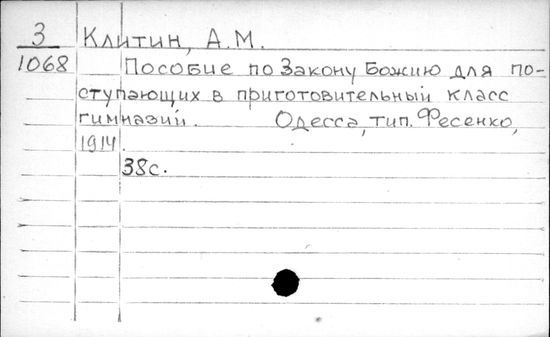 3 Клитин, А.М.
1068 Пособие по Закону Божию для по-
ступающих в приготовительный класс
гимназий. Одесса, тип. Фесенко,
1914.
38с.